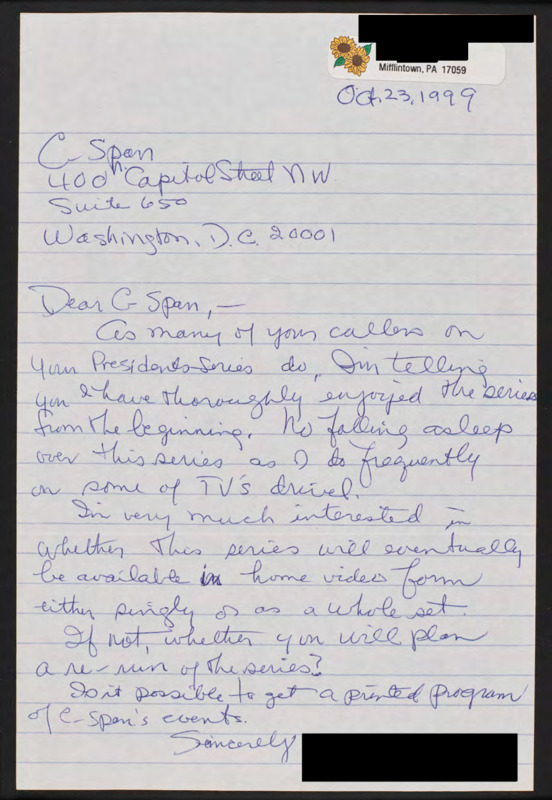 Mifflintown, PA 17059
Oct. 23, 1999
C-Span
400 N Capitol Street NW.
Suite 650
Washington, D.C. 20001
Dear C-Span,—
As many of your callers on
your Presidents Series do, I'm telling
you I have thoroughly enjoyed the series
from the beginning. No falling asleep
over this series as I do frequently
on some of TV's drivel.
I'm very much interested in
whether this series will eventually
be available in home video form
either singly or as a whole set.
If not, whether you will plan
a re-run of the series?
Is it possible to get a printed program
of C-Span's events.
Sincerely